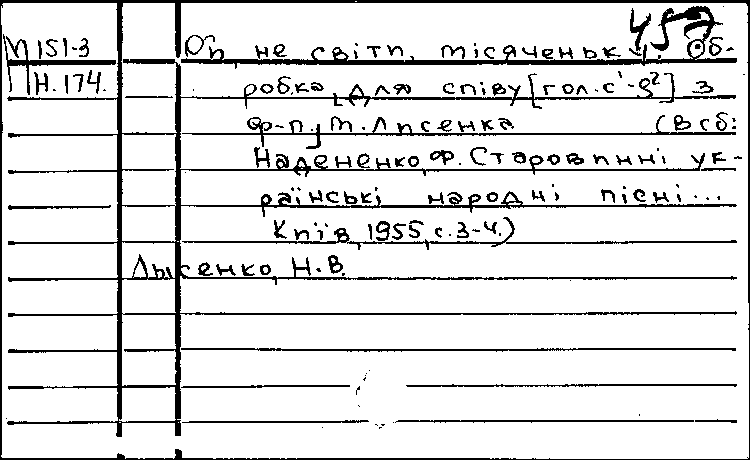 457
М151-3 Ой, не світи, місяченьку. Об-
Н.174. робка для співу [гол. с¹-g²] з
ф-п. М. Лисенка (В сб:
Надененко, Ф. Старовинні ук-
раїнські народні пісні...
Київ, 1955, с.3-4.)
Лысенко, Н.В.